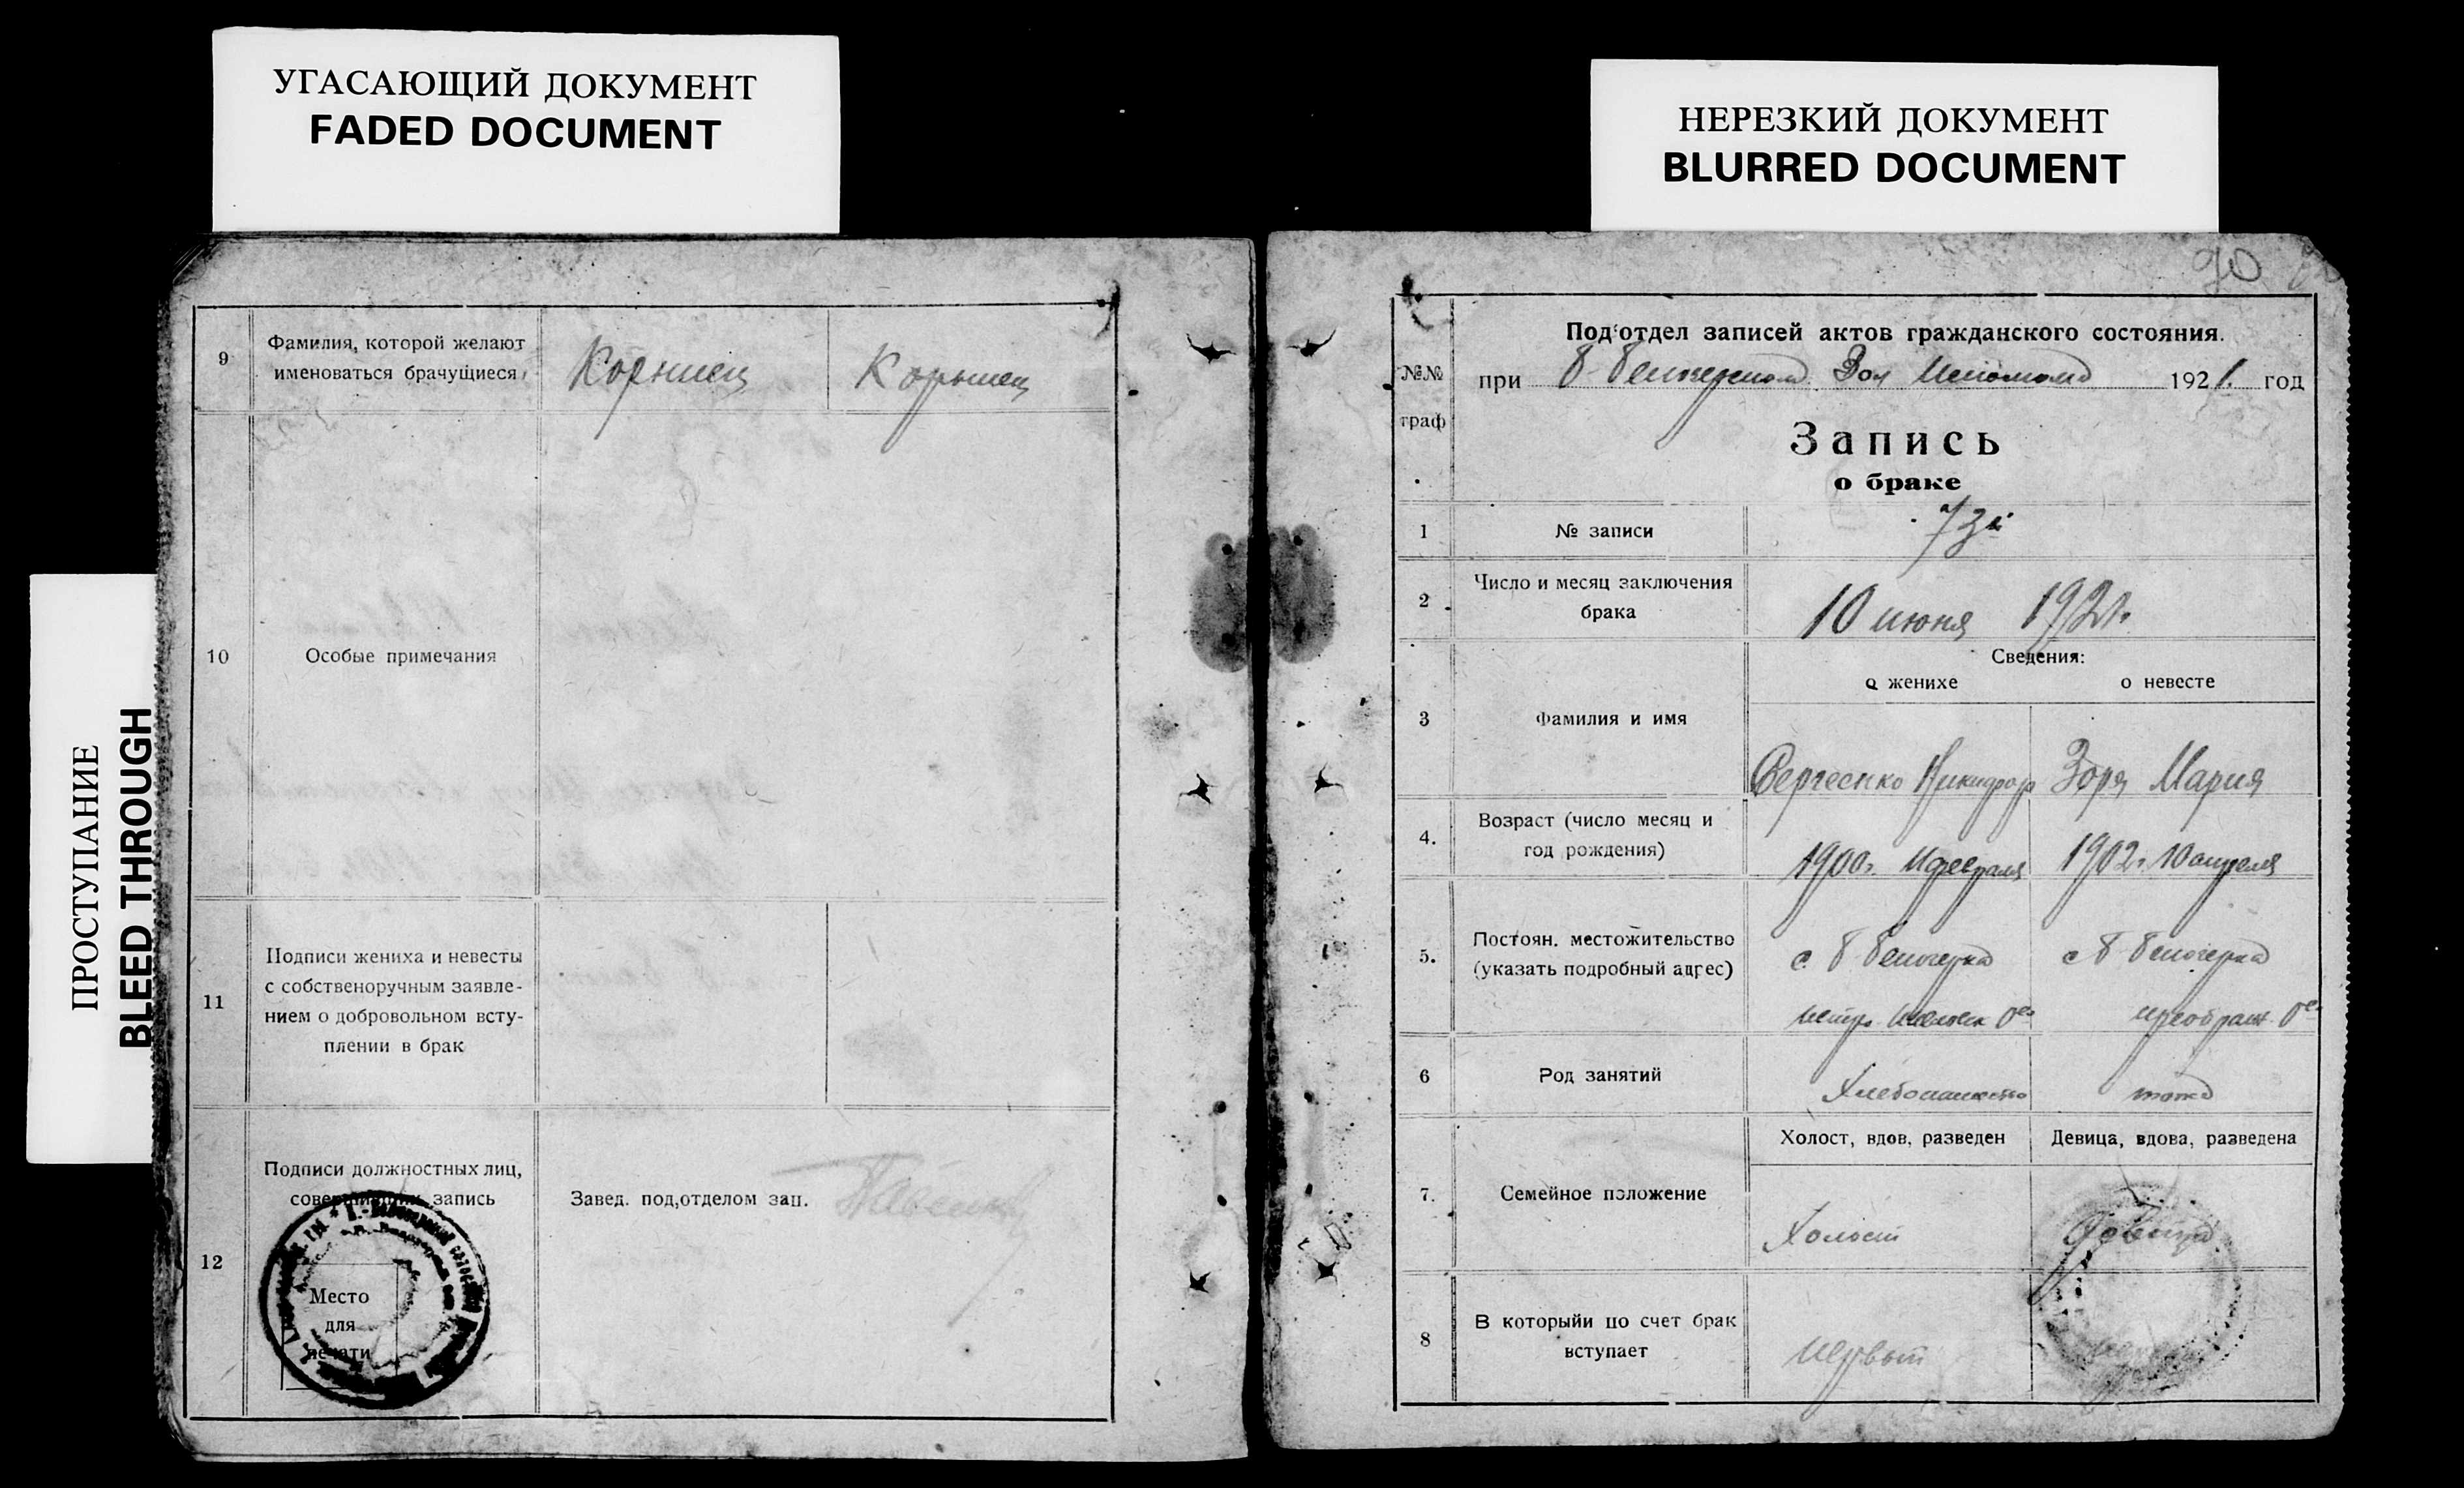 УГАСАЮЩИЙ ДОКУМЕНТ
FADED DOCUMENT
НЕРЕЗКИЙ ДОКУМЕНТ
BLURRED DOCUMENT
ПРОСТУПАНИЕ
BLEED THROUGH
9
Фамилия, которой желают
именоваться брачущиеся
Корниец
Корниец
10
Особые примечания
11
Подписи жениха и невесты
с собственоручным заявле-
нием о добровольном всту-
плении в брак
12
Подписи должностных лиц,
запись
Завед. под,отделом зап.
Место
для
печати
90
№№
граф
Под‘отдел записей актов гражданского состояния.
при Вол 1921. год
Запись
о браке
1
№ записи
73й
2
Число и месяц заключения
брака
10 июня 1921г.
Сведения:
о женихе
о невесте
3
Фамилия и имя
Сергеенко Никифор
Зоря Мария
4.
Возраст (число месяц и
год рождения)
1900г. февраля
1902г. 10 апреля
5.
Постоян. местожительство
(указать подробный адрес)
с. Белозерка
с Белозерка
6
Род занятий
Хлебопашество
тоже
7.
Семейное положение
Холост, вдов, разведен
Девица, вдова, разведена
Холост
девица
8
В которыйи по счет брак
вступает
первый